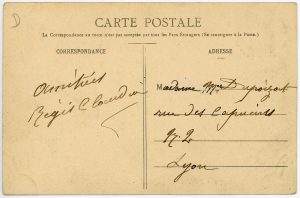 D
CARTE POSTALE
La Correspondance au recto n'est pas acceptée par tous les Pays Étrangers (Se renseigner à la Poste.)
CORRESPONDANCE
ADRESSE
Amitiés
Régis Claudia
Madame
rue des Capucins
N. 2
Lyon